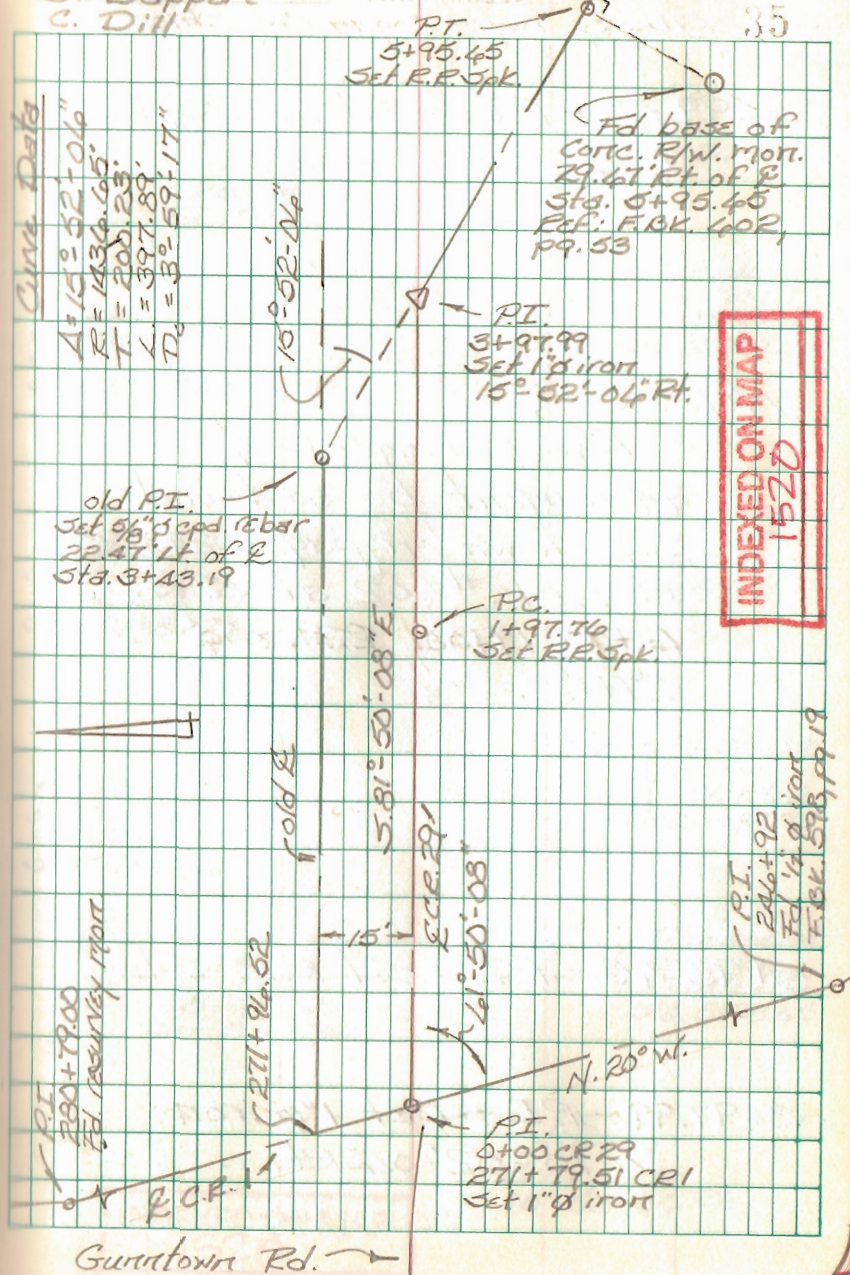 C. Dill
35
P.T.
5+95.65
Set R.R. Spk.
Fd base of
Conc. R/W. mon.
29.67' Rt. of ℄
Sta. 5+95.65
Ref: F.BK. 602,
pg. 53
Curve Data
Δ = 15°-52'-04"
R = 1436.65'
T = 200.23'
L. = 397.89'
Dc = 3°-59'-17"
15°-52'-04"
P.I.
3+97.99
Set 1"ø iron
15°-52'-04" Rt.
INDEXED ON MAP
1520
old P.I.
Set 5/8"ø cpd. rebar
22.47' Lt. of ℄
Sta. 3+43.19
P.C.
1+97.76
Set R.R. Spk.
S.81°-50'-08"E.
old ℄
℄ C.R. 29
61°-50'-08"
15'
271+96.52
P.I.
246+92
Fd ½"ø iron
F.BK. 598, pg. 19
N. 20° W.
P.I.
280+79.00
Fd. resurvey mon.
℄ C.R. 1
P.I.
0+00 CR 29
271+79.51 CR1
Set 1"ø iron
Gunntown Rd.